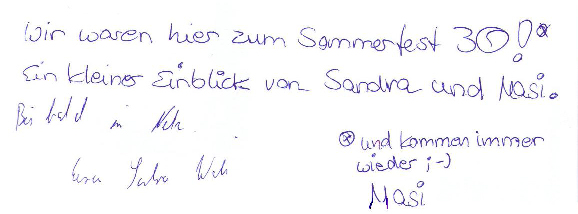 Wir waren hier zum Sommerfest 30!*
Ein kleiner Einblick von Sandra und Masi.
Bis bald in
* und kommen immer
wieder ;-)
Masi